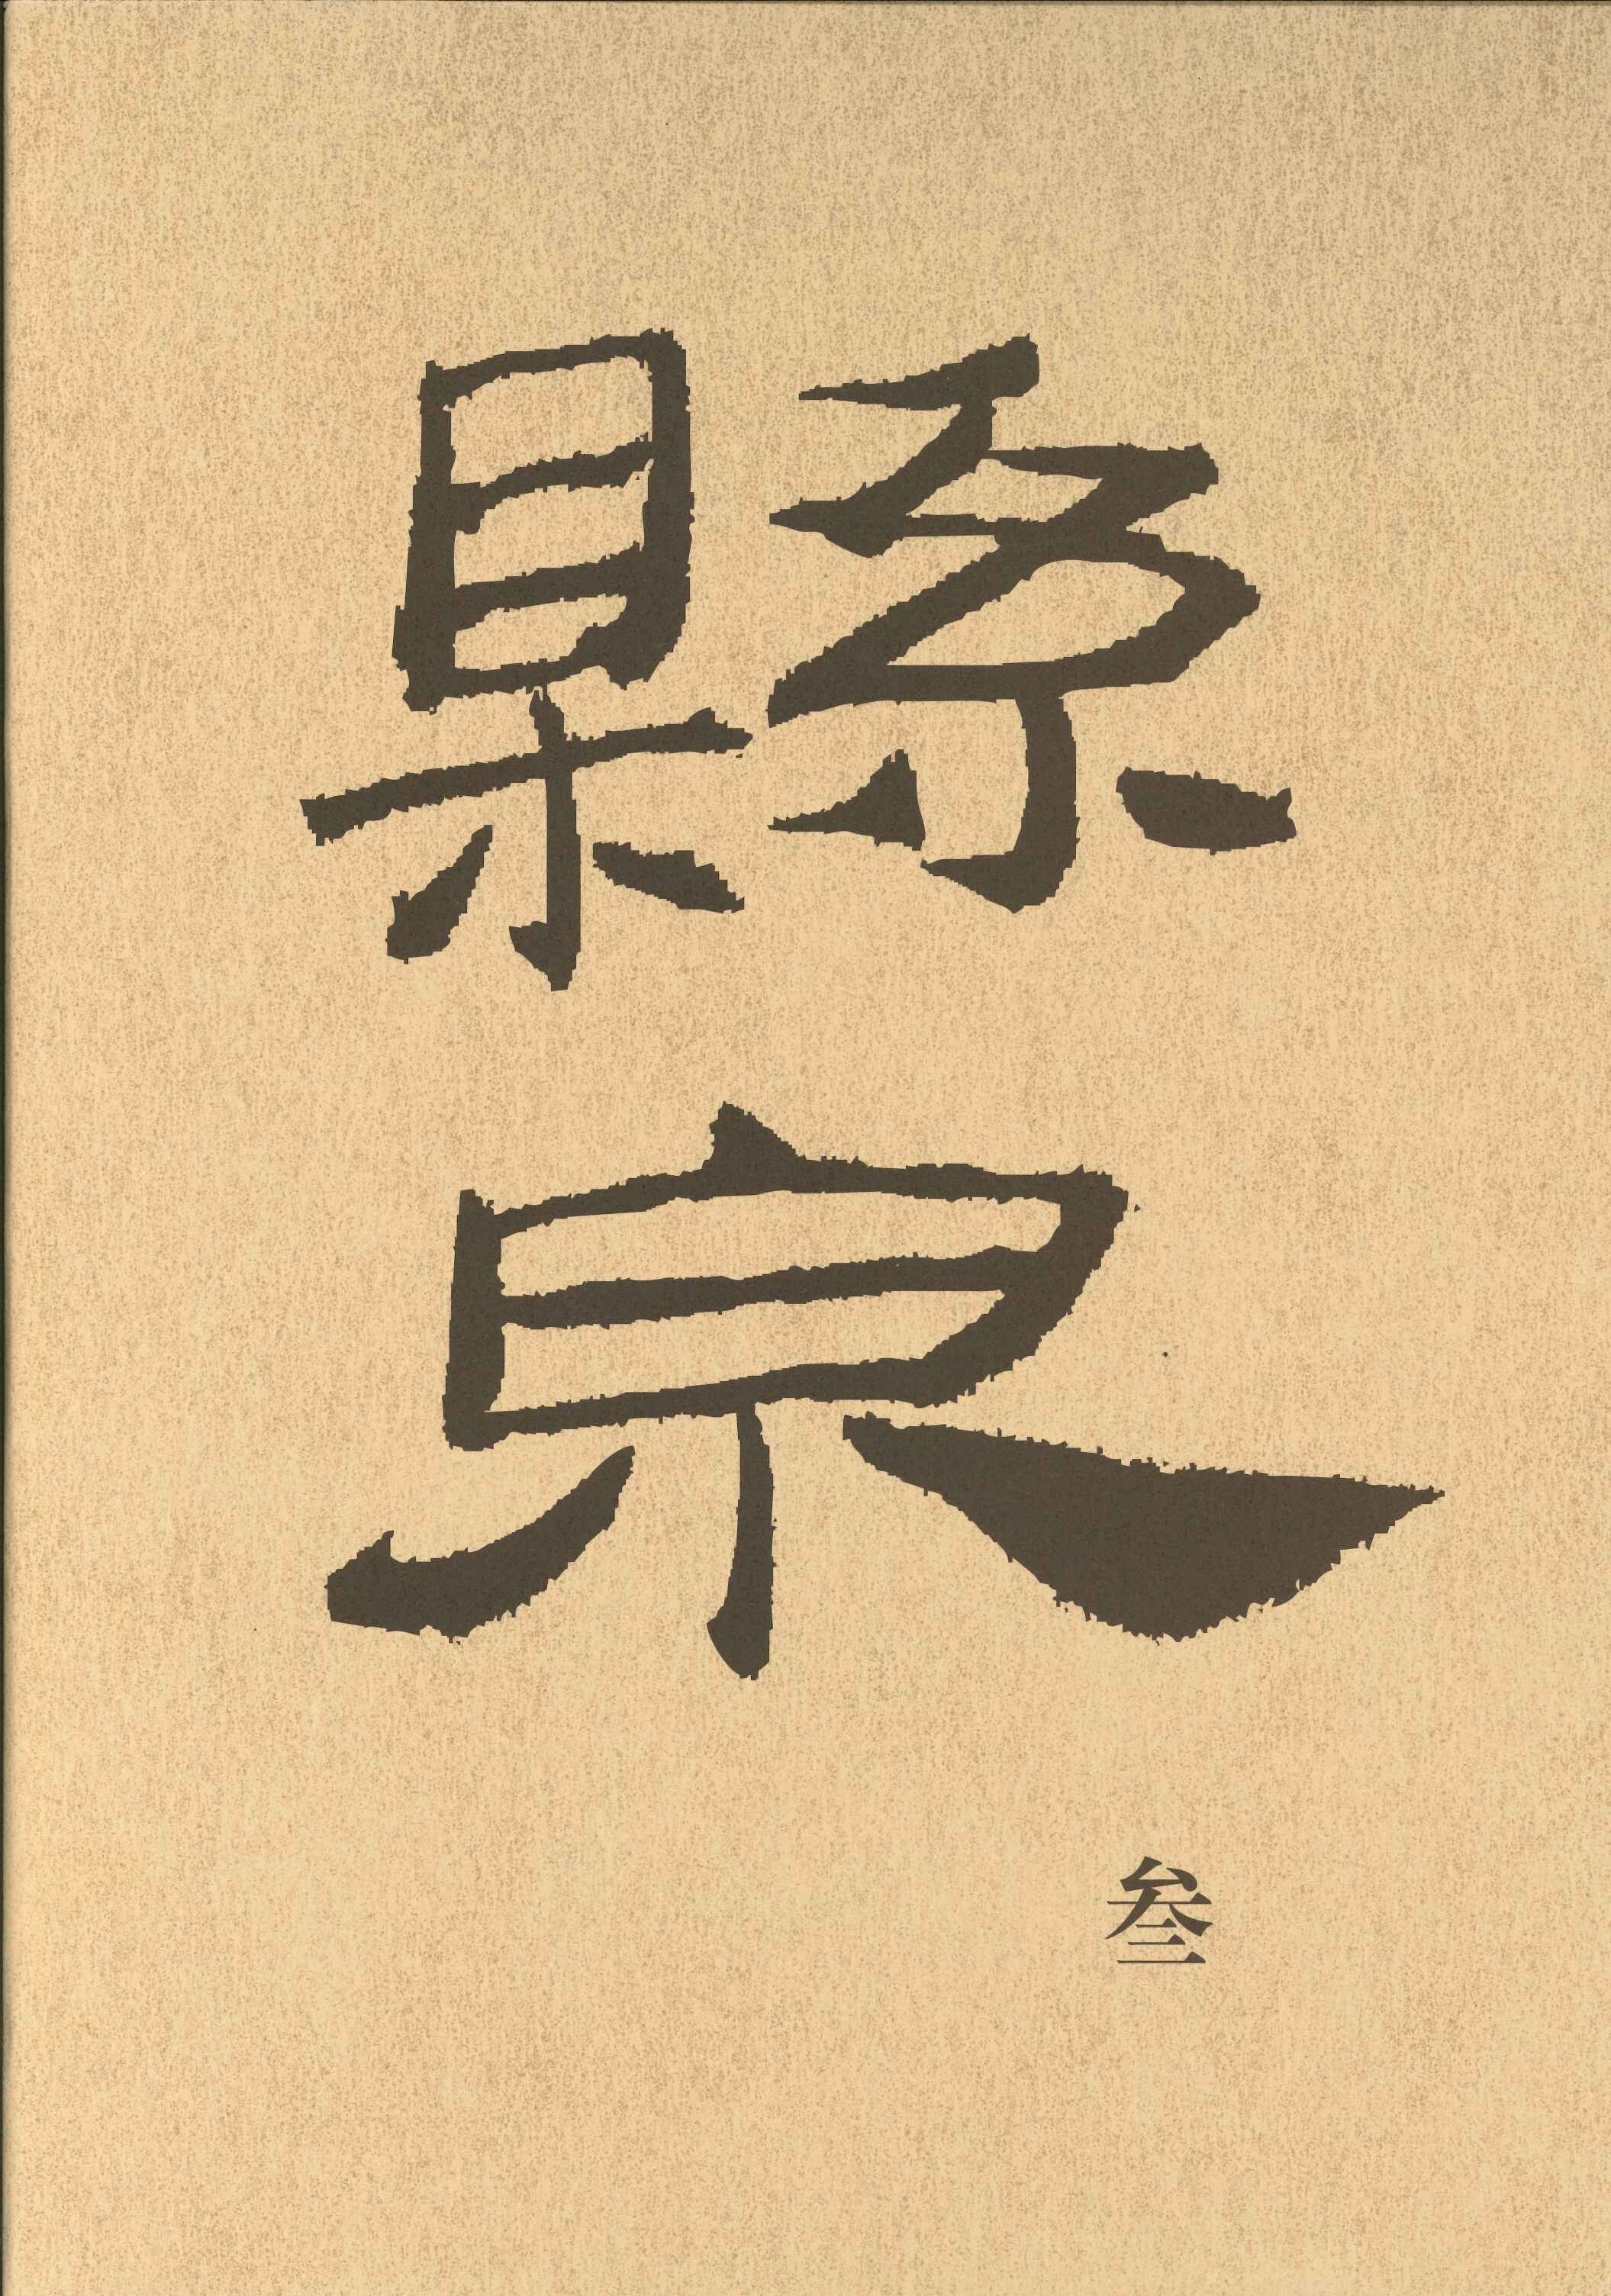 縣
泉
叁